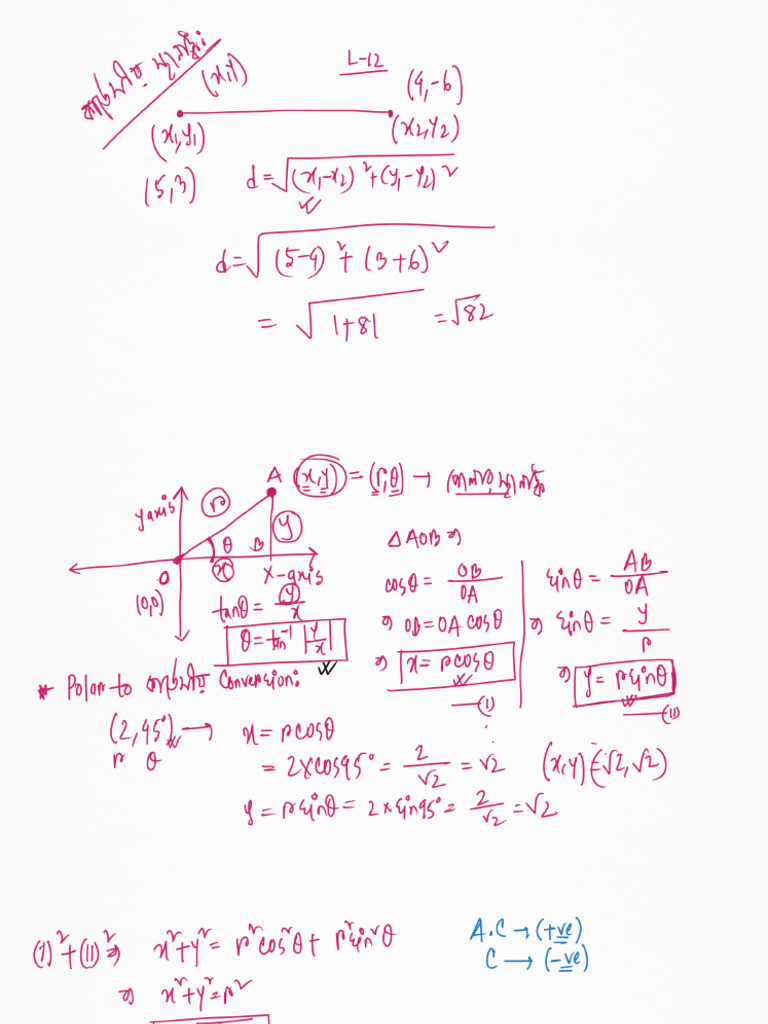 কার্তেসীয় স্থানাঙ্ক:
L-12
(x,y)
(4,-6)
(x₁,y₁)
(x₂,y₂)
(5,3)
d=√(x₁-x₂)²+(y₁-y₂)²
d=√(5-4)²+(3+6)²
= √1+81 =√82
A (x,y) = (r,θ) → পোলার স্থানাঙ্ক
y axis
r
y
θ
B
x
O
X-axis
(0,0)
tanθ = y/x
θ = tan⁻¹|y/x|
△AOB এ
cosθ = OB/OA
⇒ OB = OA cosθ
⇒ x = rcosθ
—(i)
sinθ = AB/OA
⇒ sinθ = y/r
⇒ y = rsinθ
—(ii)
* Polar to কার্তেসীয় Conversion:
(2,45°) → x = rcosθ
r θ
= 2×cos45° = 2/√2 = √2 (x,y) = (√2,√2)
y = rsinθ = 2×sin45° = 2/√2 = √2
(i)²+(ii)² ⇒ x²+y² = r²cos²θ + r²sin²θ
⇒ x²+y²=r²
A.C → (+ve)
C → (-ve)